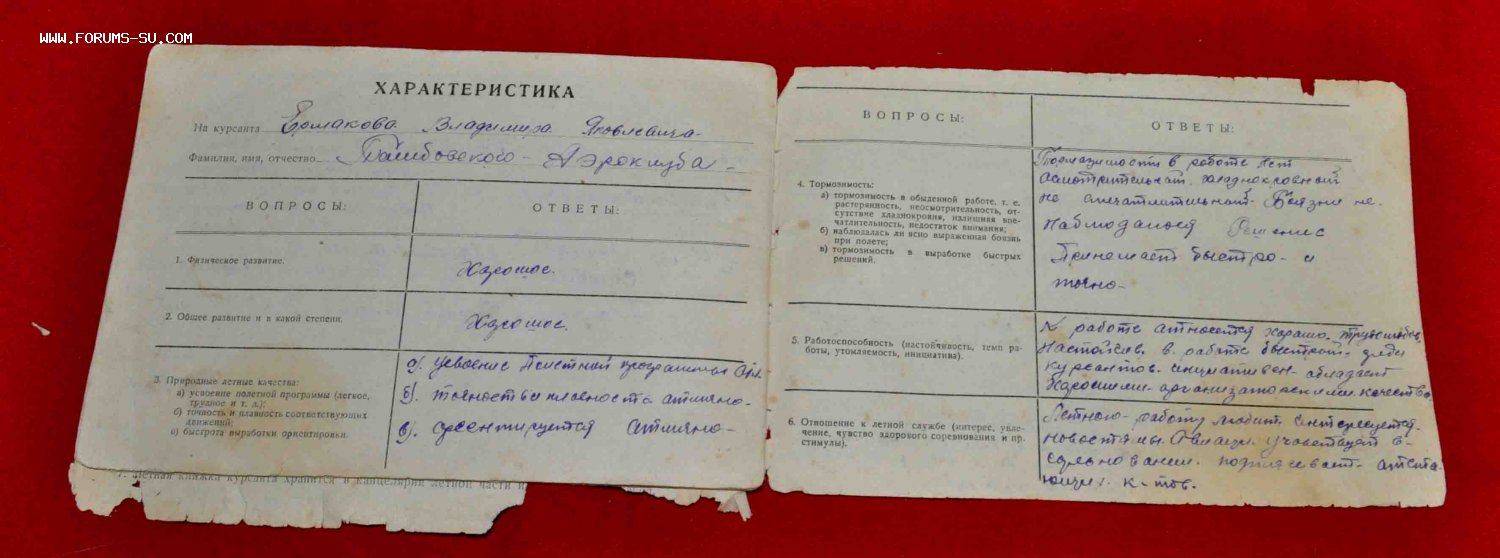 WWW.FORUMS-SU.COM
ХАРАКТЕРИСТИКА
На курсанта Ермакова Владимира Яковлевича
Фамилия, имя, отчество Тамбовского - Аэроклуба -
ВОПРОСЫ:
ОТВЕТЫ:
1. Физическое развитие.
Хорошое.
2. Общее развитие и в какой степени.
Хорошое.
3. Природные летные качества:
а) усвоение полетной программы (легкое,
трудное и т. д.);
б) точность и плавность соответствующих
движений;
в) быстрота выработки ориентировки.
а) усвоение Полетной программы
б). точность и плавность атлично-
в). ориентируется атлично-
7. Летная книжка курсанта хранится в канцелярии летной части и
ВОПРОСЫ:
ОТВЕТЫ:
4. Тормозимость:
а) тормозимость в обыденной работе, т. е.
растерянность, неосмотрительность, от-
сутствие хладнокровия, излишняя впе-
чатлительность, недостаток внимания;
б) наблюдалась ли ясно выраженная боязнь
при полете;
в) тормозимость в выработке быстрых
решений.
Тормозимости в работе нет
хладнокровный
не Боязни не-
наблюдалося Решение
Принемает быстро- и
точно-
5. Работоспособность (настойчивость, темп ра-
боты, утомляемость, инициатива).
К работе относется харашо.
Настойчив. в работе быстрый- среди
курсантов. обладает
Хорошими- арганизаторскими качества
6. Отношение к летной службе (интерес, увле-
чение, чувство здорового соревнования и пр.
стимулы).
Летною- работу любит. интересуется-
новостями Авиации. учавствует в-
сореьновании. подтягивает- атста-
ющих к-тов.